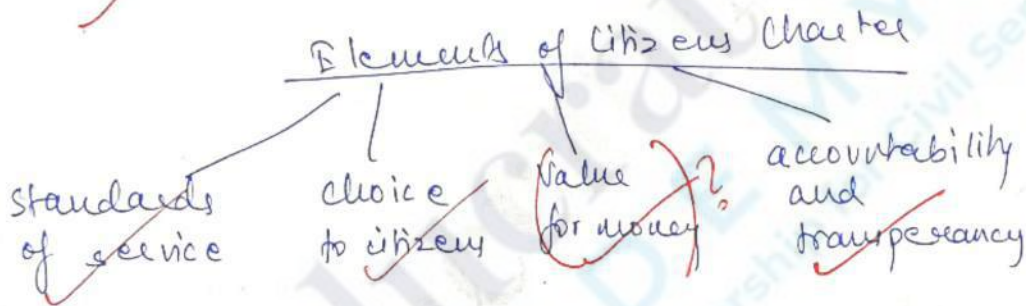 Elements of Citizens Charter
standards
of service
choice
to citizens
(Value
for money)?
accountability
and
transperancy